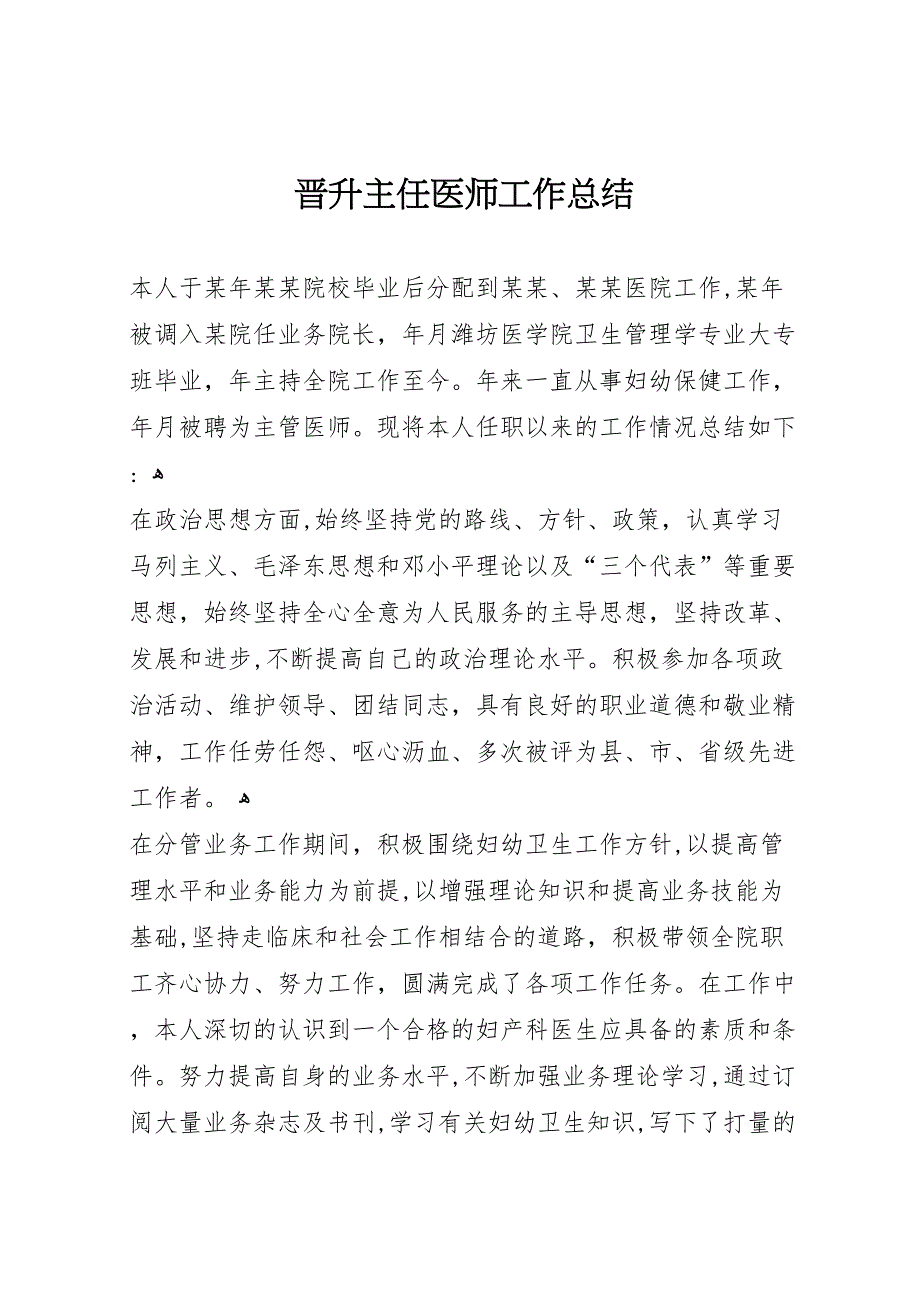 晋升主任医师工作总结
本人于某年某某院校毕业后分配到某某、某某医院工作,某年
被调入某院任业务院长，年月潍坊医学院卫生管理学专业大专
班毕业，年主持全院工作至今。年来一直从事妇幼保健工作，
年月被聘为主管医师。现将本人任职以来的工作情况总结如下
：ﻫ
在政治思想方面,始终坚持党的路线、方针、政策，认真学习
马列主义、毛泽东思想和邓小平理论以及“三个代表”等重要
思想，始终坚持全心全意为人民服务的主导思想，坚持改革、
发展和进步,不断提高自己的政治理论水平。积极参加各项政
治活动、维护领导、团结同志，具有良好的职业道德和敬业精
神，工作任劳任怨、呕心沥血、多次被评为县、市、省级先进
工作者。ﻫ
在分管业务工作期间，积极围绕妇幼卫生工作方针,以提高管
理水平和业务能力为前提,以增强理论知识和提高业务技能为
基础,坚持走临床和社会工作相结合的道路，积极带领全院职
工齐心协力、努力工作，圆满完成了各项工作任务。在工作中
，本人深切的认识到一个合格的妇产科医生应具备的素质和条
件。努力提高自身的业务水平,不断加强业务理论学习,通过订
阅大量业务杂志及书刊,学习有关妇幼卫生知识,写下了打量的